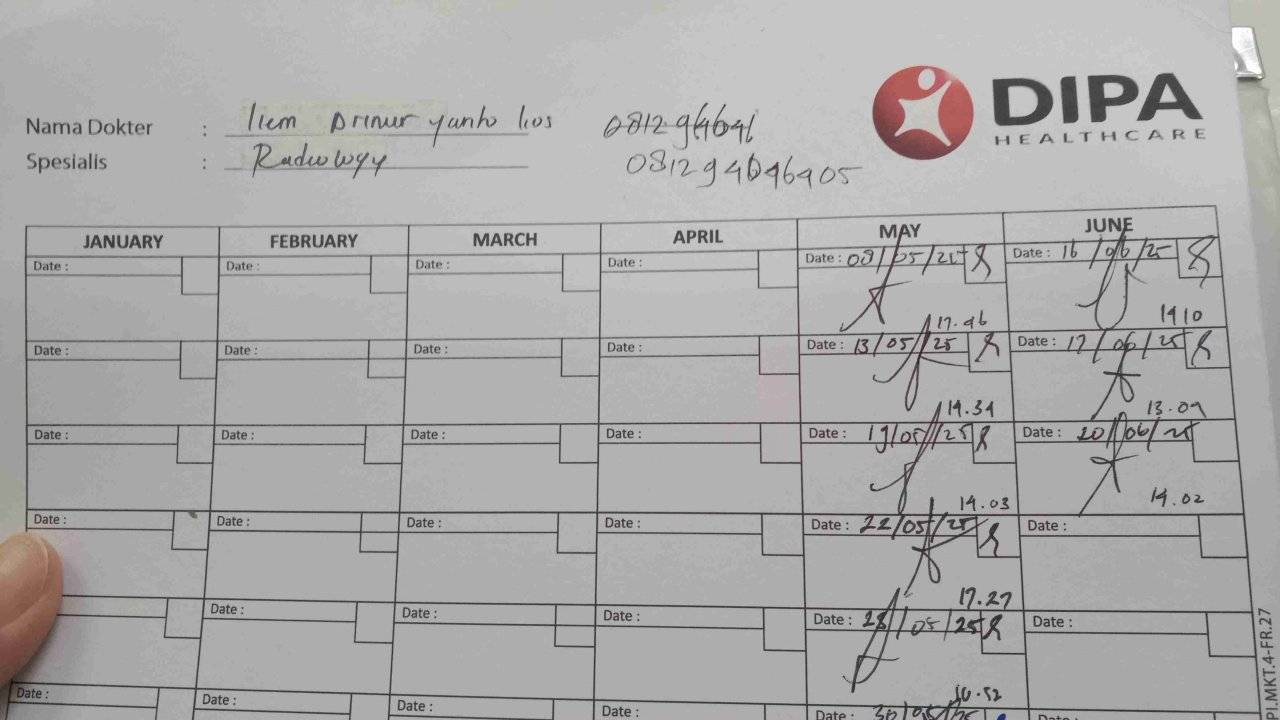 DIPA
HEALTHCARE
Nama Dokter :
Spesialis : Radiology
081294646405
JANUARY FEBRUARY MARCH APRIL MAY JUNE
Date : Date : Date : Date : Date : 08/05/25 Date : 16/06/25
17.46 1410
Date : Date : Date : Date : Date : 13/05/25 Date : 17/06/25
14.34 13.09
Date : Date : Date : Date : Date : 19/05/25 Date : 20/06/25
14.03 14.02
Date : Date : Date : Date : Date : 22/05/25 Date :
17.27
Date : Date : Date : 28/05/25 Date :
16.52
Date : Date : Date : Date : Date : 30/05/25 Date :
PI.MKT.4-FR.27